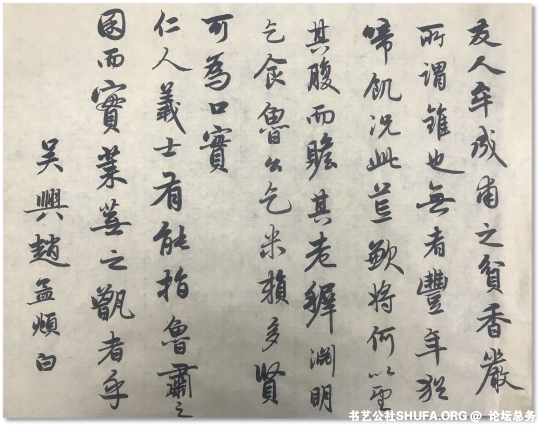 友人弃成甫之貧香嚴
所謂錐也無者豐年猶
啼飢况此荒歉將何以望
其腹而贍其老穉淵明
乞食魯公乞米賴多賢
可為口實
仁人義士有能指魯肅之
囷而實萊蕪之甑者乎
吴興趙孟頫白
书艺公社SHUFA.ORG @ 论坛总务